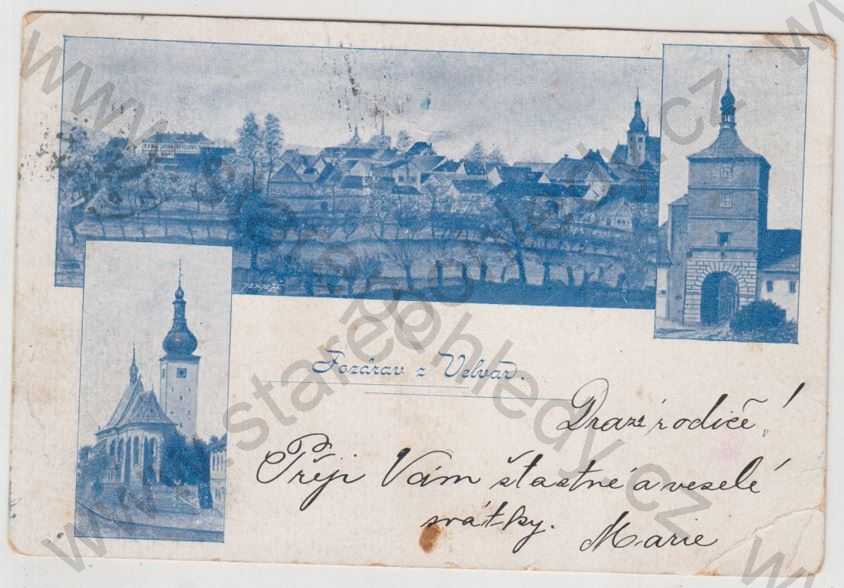 Pozdrav z Velvar.
Drazí rodiče!
Přeji Vám šťastné a veselé
svátky.
Marie
www.starepohledy.cz